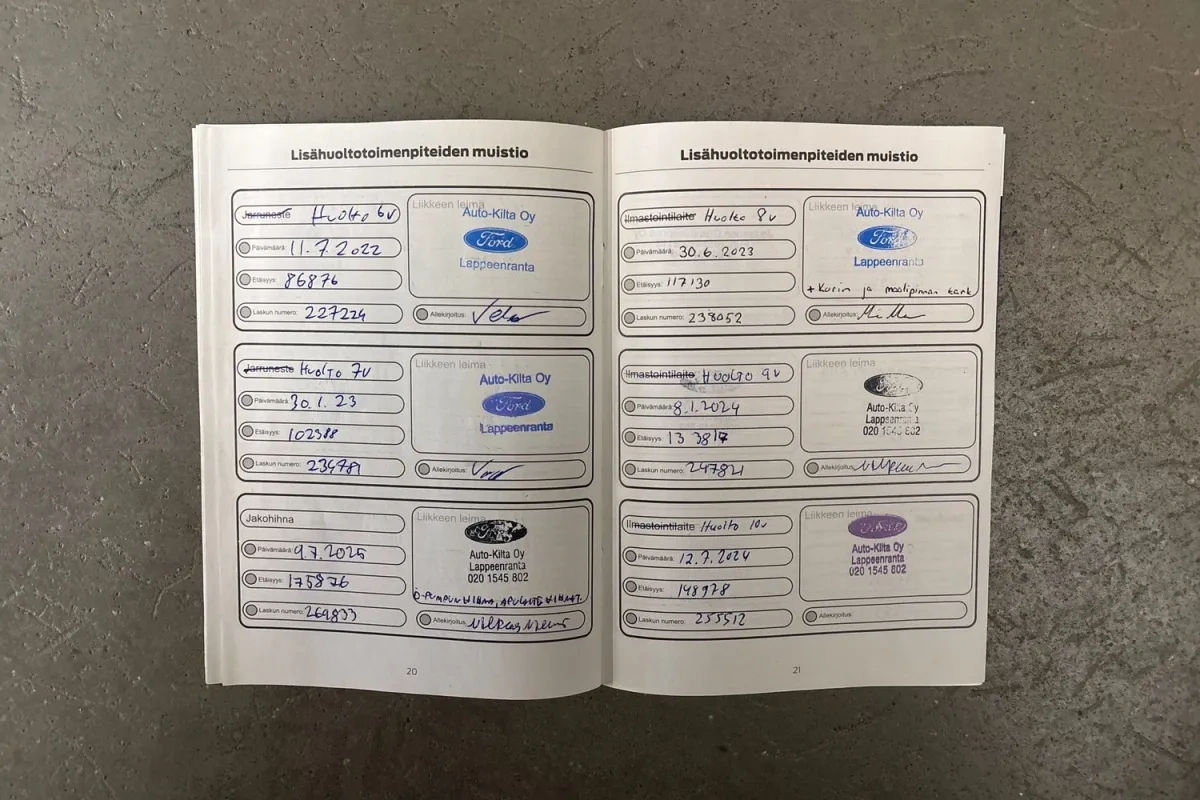 Lisähuoltotoimenpiteiden muistio
Jarruneste Huolto 6v
Päivämäärä: 11.7.2022
Etäisyys: 86876
Laskun numero: 227224
Liikkeen leima
Auto-Kilta Oy
Ford
Lappeenranta
Allekirjoitus:
Jarruneste Huolto 7v
Päivämäärä: 30.1.23
Etäisyys: 102588
Laskun numero: 234781
Liikkeen leima
Auto-Kilta Oy
Ford
Lappeenranta
Allekirjoitus:
Jakohihna
Päivämäärä: 9.7.2025
Etäisyys: 175876
Laskun numero: 269833
Liikkeen leima
Ford
Auto-Kilta Oy
Lappeenranta
020 1545 802
Ö-PUMPUN HIHNA, APULAITE HIHNAT.
Allekirjoitus:
20
Lisähuoltotoimenpiteiden muistio
Ilmastointilaite Huolto 8v
Päivämäärä: 30.6.2023
Etäisyys: 117130
Laskun numero: 238052
Liikkeen leima
Auto-Kilta Oy
Ford
Lappeenranta
+ Korin ja maalipinnan tark
Allekirjoitus:
Ilmastointilaite Huolto 9v
Päivämäärä: 8.1.2024
Etäisyys: 133817
Laskun numero: 247821
Liikkeen leima
Auto-Kilta Oy
Lappeenranta
020 1545 802
Allekirjoitus:
Ilmastointilaite Huolto 10v
Päivämäärä: 12.7.2024
Etäisyys: 148978
Laskun numero: 255512
Liikkeen leima
Auto-Kilta Oy
Lappeenranta
020 1545 802
Allekirjoitus:
21